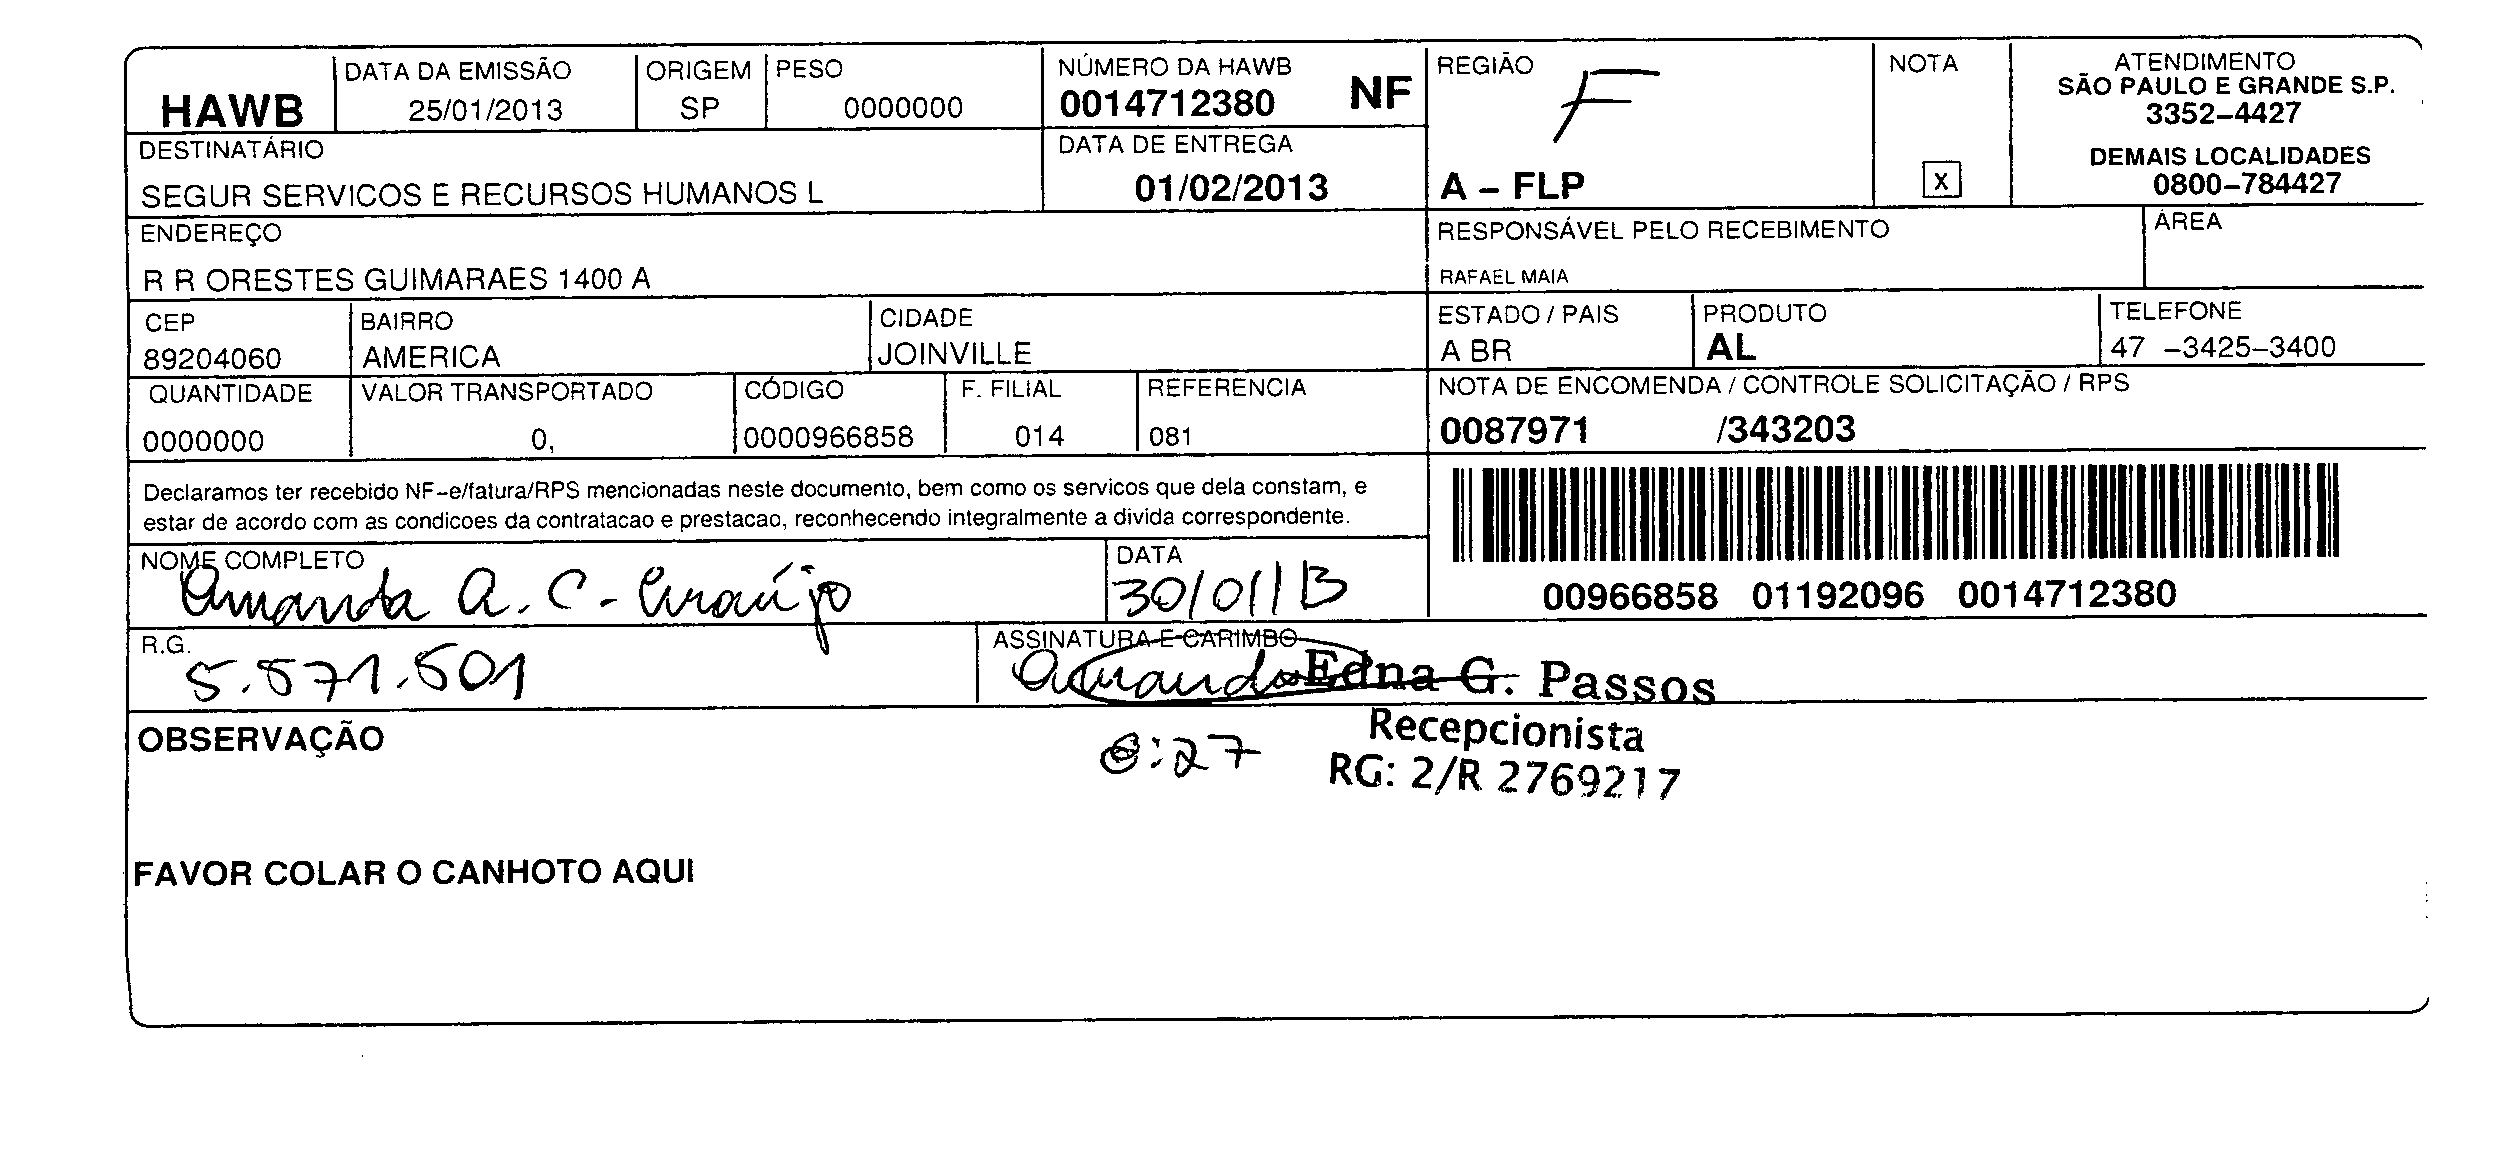 HAWB
DATA DA EMISSÃO
25/01/2013
ORIGEM
SP
PESO
0000000
NÚMERO DA HAWB
0014712380 NF
REGIÃO
F
A – FLP
NOTA
X
ATENDIMENTO
SÃO PAULO E GRANDE S.P.
3352–4427
DEMAIS LOCALIDADES
0800–784427
DESTINATÁRIO
SEGUR SERVICOS E RECURSOS HUMANOS L
DATA DE ENTREGA
01/02/2013
ENDEREÇO
R R ORESTES GUIMARAES 1400 A
RESPONSÁVEL PELO RECEBIMENTO
RAFAEL MAIA
ÁREA
CEP
89204060
BAIRRO
AMERICA
CIDADE
JOINVILLE
ESTADO / PAIS
A BR
PRODUTO
AL
TELEFONE
47 –3425–3400
QUANTIDADE
0000000
VALOR TRANSPORTADO
0,
CÓDIGO
0000966858
F. FILIAL
014
REFERENCIA
081
NOTA DE ENCOMENDA / CONTROLE SOLICITAÇÃO / RPS
0087971 /343203
Declaramos ter recebido NF–e/fatura/RPS mencionadas neste documento, bem como os servicos que dela constam, e
estar de acordo com as condicoes da contratacao e prestacao, reconhecendo integralmente a divida correspondente.
00966858 01192096 0014712380
NOME COMPLETO
Amanda A. C. Araújo
DATA
30/01/13
R.G.
5.571.501
ASSINATURA E CARIMBO
Amanda
Edna G. Passos
Recepcionista
RG: 2/R 2769217
OBSERVAÇÃO
:27
FAVOR COLAR O CANHOTO AQUI